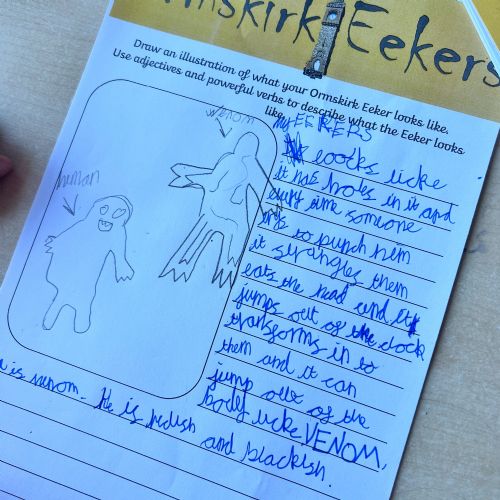 Ormskirk Eekers
Draw an illustration of what your Ormskirk Eeker looks like.
Use adjectives and powerful verbs to describe what the Eeker looks
like.
venom
human
my EEKERS
looks like
it has holes in it and
every time someone
trys to punch him
it strangles them
eats the head and it
jumps out of the clock
transforms in to
them and it can
jump out of the
body licke VENOM.
is venom. He is redish and blackish.